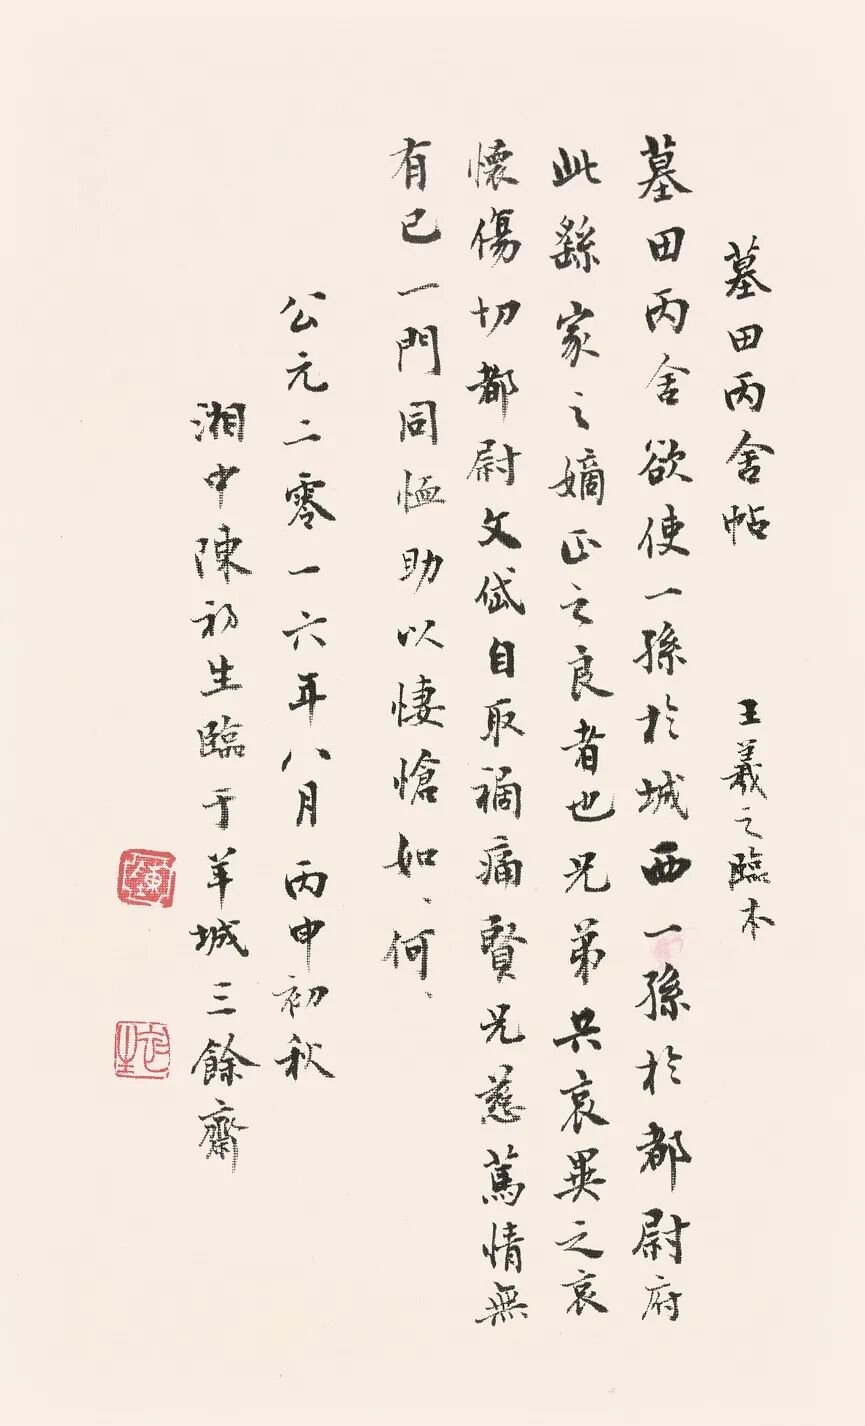 墓田丙舍帖 王羲之臨本
墓田丙舍欲使一孫於城西一孫於都尉府
此繇家之嫡正之良者也兄弟共哀異之哀
懷傷切都尉文岱自取禍痛賢兄慈篤情無
有已一門同恤助以悽愴如、何、
公元二零一六年八月丙申初秋
湘中陳初生臨于羊城三餘齋